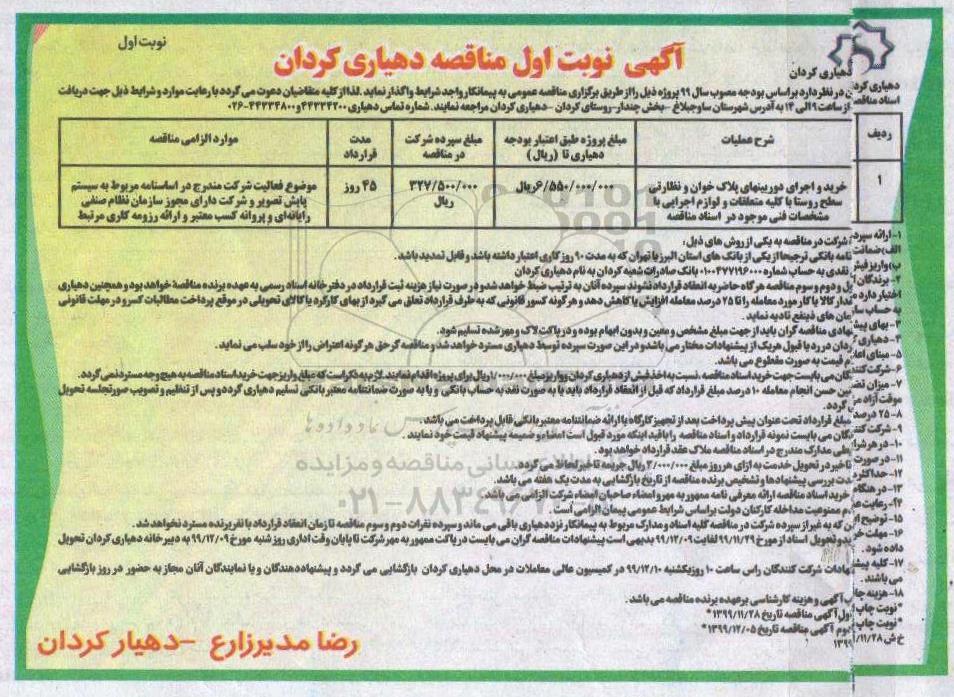 نوبت اول
آگهی نوبت اول مناقصه دهیاری کردان
دهیاری کردان
دهیاری کردان در نظر دارد براساس بودجه مصوب سال ۹۹ پروژه ذیل را از طریق برگزاری مناقصه عمومی به پیمانکار واجد شرایط واگذار نماید. لذا از کلیه متقاضیان دعوت می گردد با رعایت موارد و شرایط ذیل جهت دریافت
اسناد مناقصه از ساعت ۹ الی ۱۴ به آدرس شهرستان ساوجبلاغ -بخش چندار-روستای کردان -دهیاری کردان مراجعه نمایند. شماره تماس دهیاری ۴۴۳۳۴۲۰۰ و ۴۴۳۳۴۸۰۰-۰۲۶
ردیف شرح عملیات مبلغ پروژه طبق اعتبار بودجه دهیاری تا (ریال) مبلغ سپرده شرکت در مناقصه مدت قرارداد موارد الزامی مناقصه
۱ خرید و اجرای دوربینهای پلاک خوان و نظارتی سطح روستا با کلیه متعلقات و لوازم اجرایی با مشخصات فنی موجود در اسناد مناقصه ۶/۵۵۰/۰۰۰/۰۰۰ریال ۳۲۷/۵۰۰/۰۰۰ ریال ۴۵ روز موضوع فعالیت شرکت مندرج در اساسنامه مربوط به سیستم پایش تصویر و شرکت دارای مجوز سازمان نظام صنفی رایانه‌ای و پروانه کسب معتبر و ارائه رزومه کاری مرتبط
۱- ارائه سپرده شرکت در مناقصه به یکی از روش های ذیل:
الف: ضمانت نامه بانکی ترجیحا از یکی از بانک های استان البرز یا تهران که به مدت ۹۰ روز کاری اعتبار داشته باشد و قابل تمدید باشد.
ب) واریز فیش نقدی به حساب شماره ۰۱۰۰۴۷۷۱۹۶۰۰۰ بانک صادرات شعبه کردان به نام دهیاری کردان
۲- برندگان اول و دوم و سوم مناقصه هرگاه حاضر به انعقاد قرارداد نشوند سپرده آنان به ترتیب ضبط خواهد شد و در صورت نیاز هزینه ثبت قرارداد در دفترخانه اسناد رسمی به عهده برنده مناقصه خواهد بود و همچنین دهیاری
اختیار دارد مقدار کالا یا کار مورد معامله را تا ۲۵ درصد معامله افزایش یا کاهش دهد و هرگونه کسور قانونی که به طرف قرارداد تعلق می گیرد از بهای کارکرد یا کالای تحویلی در موقع پرداخت مطالبات کسر و در مهلت قانونی
به حساب سازمان های ذینفع تادیه نماید.
۳- بهای پیشنهادی مناقصه گران باید از جهت مبلغ مشخص و معین و بدون ابهام بوده و در پاکت لاک و مهر شده تسلیم شود.
۴- دهیاری کردان در رد یا قبول هریک از پیشنهادات مختار می باشد و در این صورت سپرده توسط دهیاری مسترد خواهد شد و مناقصه گر حق هرگونه اعتراض را از خود سلب می نماید.
۵- مبنای اعلام قیمت به صورت مقطوع می باشد.
۶- شرکت کنندگان می بایست جهت خرید اسناد مناقصه، نسبت به اخذ فیش از دهیاری کردان و واریز مبلغ ۱/۰۰۰/۰۰۰ ریال برای پروژه اقدام نمایند. لازم به ذکر است که مبلغ واریز جهت خرید اسناد مناقصه به هیچ وجه مسترد نمی گردد.
۷- میزان تضمین حسن انجام معامله ۱۰ درصد مبلغ قرارداد که قبل از انعقاد قرارداد باید یا به صورت نقد به حساب بانکی و یا به صورت ضمانتنامه معتبر بانکی تسلیم دهیاری گردد و پس از تنظیم و تصویب صورتجلسه تحویل
موقت آزاد می گردد.
۸- ۲۵ درصد مبلغ قرارداد تحت عنوان پیش پرداخت بعد از تجهیز کارگاه با ارائه ضمانتنامه معتبر بانکی قابل پرداخت می باشد.
۹- شرکت کنندگان می بایست نمونه قرارداد و اسناد مناقصه را با قید اینکه مورد قبول است امضاء و ضمیمه پیشنهاد قیمت خود نمایند.
۱۰- در هر شرایطی مدارک مندرج در اسناد مناقصه ملاک عقد قرارداد خواهد بود.
۱۱- در صورت تاخیر در تحویل خدمت به ازای هر روز مبلغ ۲/۰۰۰/۰۰۰ ریال جریمه تاخیر لحاظ می گردد.
۱۲- حداکثر مدت بررسی پیشنهادها و تشخیص برنده مناقصه از تاریخ بازگشایی به مدت یک هفته می باشد.
۱۳- در هنگام خرید اسناد مناقصه ارائه معرفی نامه ممهور به مهر و امضاء صاحبان امضاء شرکت الزامی می باشد.
۱۴- رعایت عدم ممنوعیت مداخله کارکنان دولت براساس شرایط عمومی پیمان الزامی است.
۱۵- توضیح این که به غیر از سپرده شرکت در مناقصه کلیه اسناد و مدارک مربوط به پیمانکار نزد دهیاری باقی می ماند و سپرده نفرات دوم و سوم مناقصه تا زمان انعقاد قرارداد با نفر برنده مسترد نخواهد شد.
۱۶- مهلت خرید و تحویل اسناد از مورخ ۹۹/۱۱/۲۹ لغایت ۹۹/۱۲/۰۹ بدیهی است پیشنهادات مناقصه گران می بایست در پاکت ممهور به مهر شرکت تا پایان وقت اداری روز شنبه مورخ ۹۹/۱۲/۰۹ به دبیرخانه دهیاری کردان تحویل
داده شود.
۱۷- کلیه پیشنهادات شرکت کنندگان راس ساعت ۱۰ روز یکشنبه ۹۹/۱۲/۱۰ در کمیسیون عالی معاملات در محل دهیاری کردان بازگشایی می گردد و پیشنهاددهندگان و یا نمایندگان آنان مجاز به حضور در روز بازگشایی
می باشند.
۱۸- هزینه چاپ آگهی و هزینه کارشناسی بر عهده برنده مناقصه می باشد.
*نوبت چاپ اول آگهی مناقصه تاریخ ۱۳۹۹/۱۱/۲۸*
*نوبت چاپ دوم آگهی مناقصه تاریخ ۱۳۹۹/۱۲/۰۵*
خ ش ۱۳۹۹/۱۱/۲۸
رضا مدیرزارع -دهیار کردان
۰۲۱-۸۸۳۴۹۶۷۰